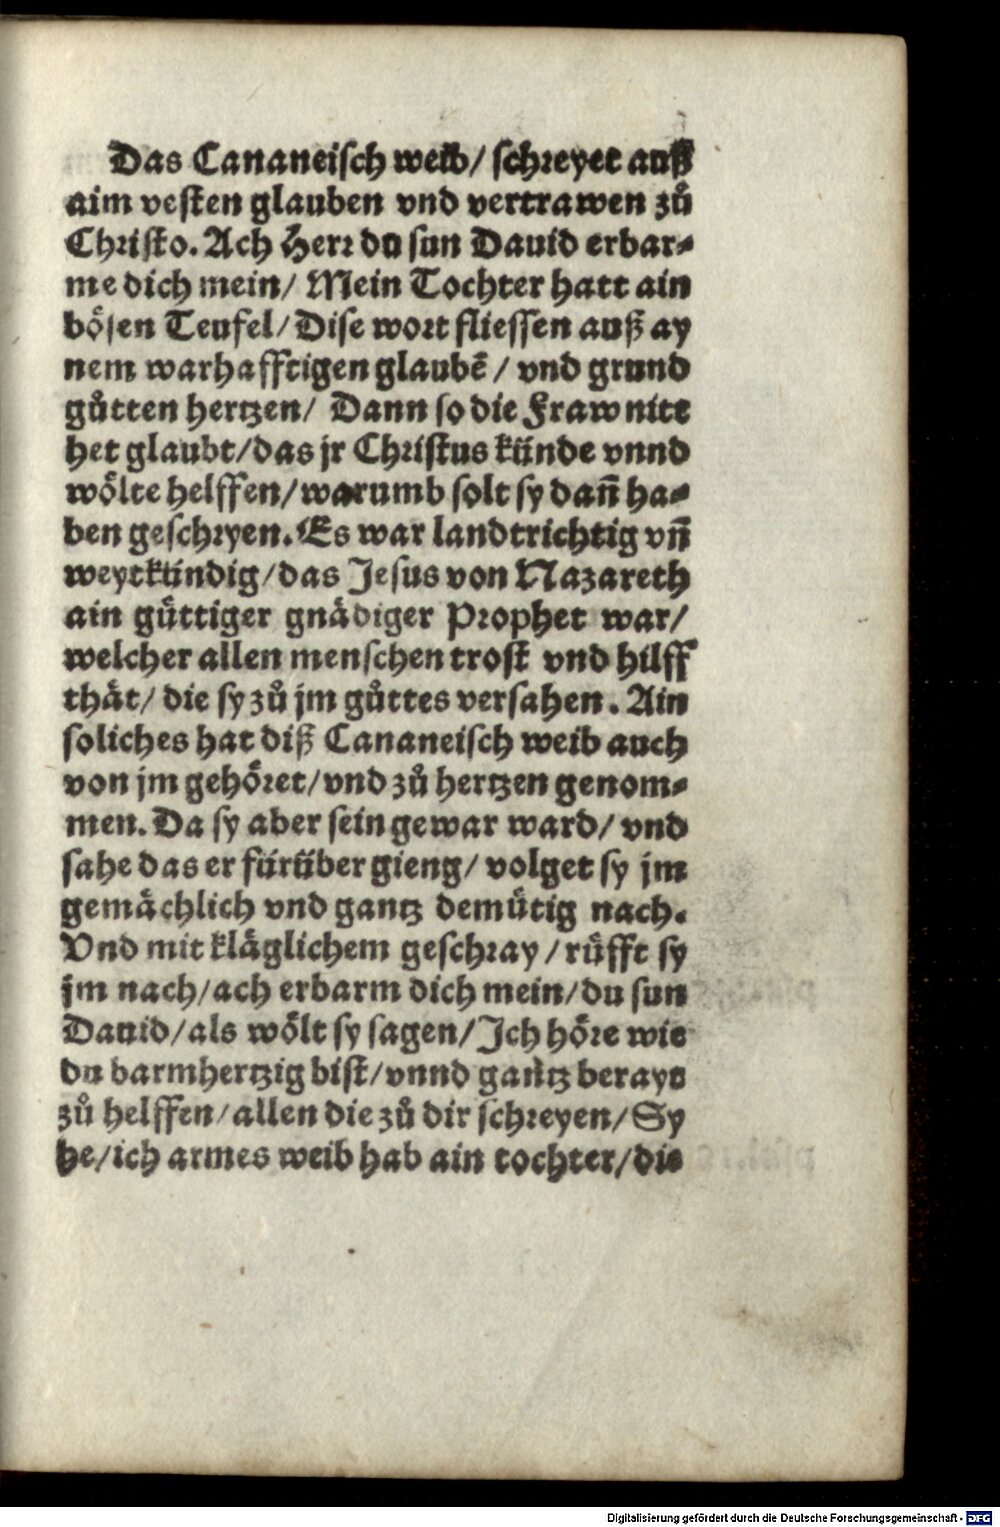 Das Cananeisch weib/ schreyet auß
aim vesten glauben vnd vertrawen zů
Christo. Ach Herr du sun Dauid erbar-
me dich mein/ Mein Tochter hatt ain
bösen Teufel/ Dise wort fliessen auß ay
nem warhafftigen glaubẽ/ vnd grund
gůtten hertzen/ Dann so die Fraw nitt
het glaubt/ das jr Christus künde vnnd
wölte helffen/ warumb solt sy dañ ha-
ben geschryen. Es war landtrichtig vñ
weytkündig/ das Jesus von Nazareth
ain güttiger gnädiger Prophet war/
welcher allen menschen trost vnd hilff
thät/ die sy zů jm gůttes versahen. Ain
soliches hat diß Cananeisch weib auch
von jm gehöret/ vnd zů hertzen genom-
men. Da sy aber sein gewar ward/ vnd
sahe das er fürüber gieng/ volget sy jm
gemächlich vnd gantz demütig nach.
Vnd mit kläglichem geschray/ rüfft sy
jm nach/ ach erbarm dich mein/ du sun
Dauid/ als wölt sy sagen/ Jch höre wie
du barmhertzig bist/ vnnd gantz berayt
zů helffen/ allen die zů dir schreyen/ Sy
he/ ich armes weib hab ain tochter/ die
Digitalisierung gefördert durch die Deutsche Forschungsgemeinschaft - DFG